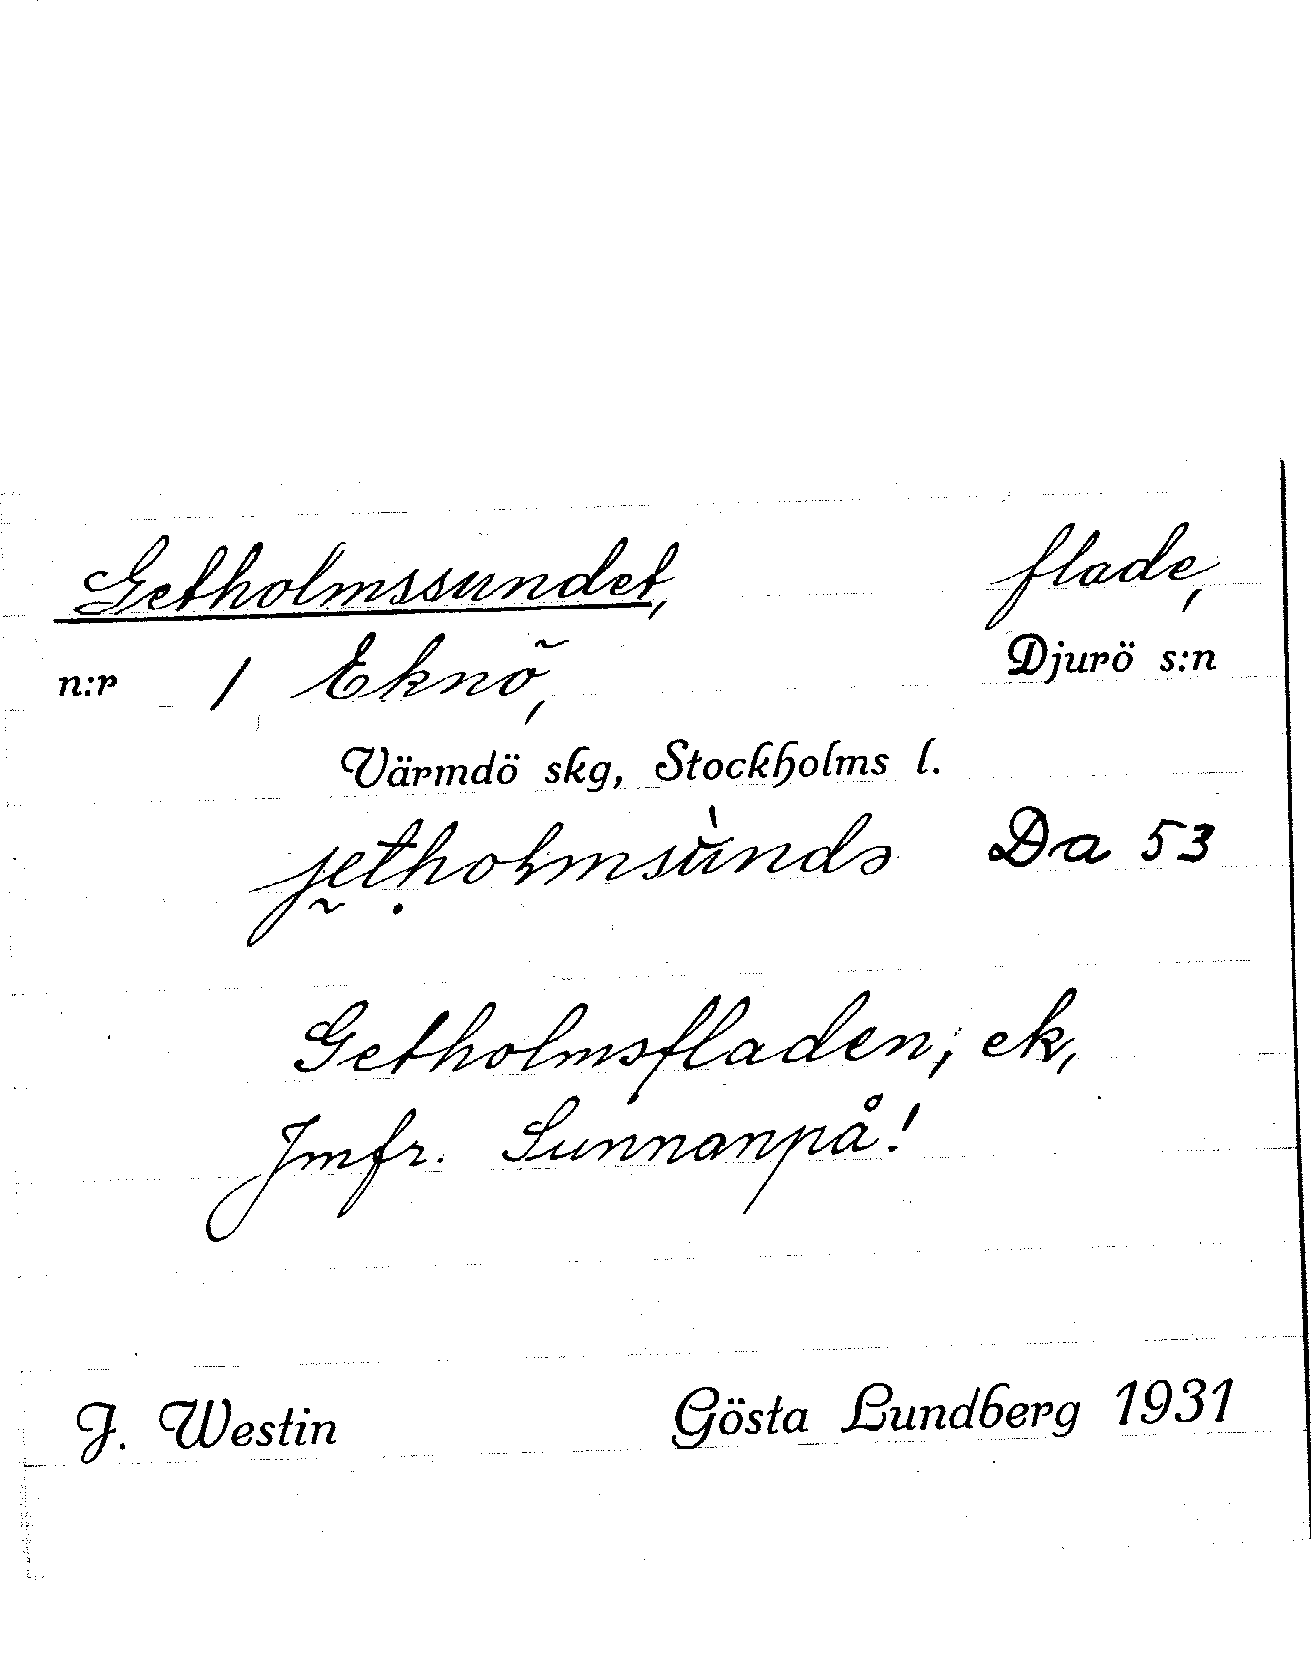 Getholmssundet, flade,
n:r 1 Eknö, Djurö s:n
Värmdö skg, Stockholms l.
jetholmsùndə Da 53
Getholmsfladen, ek,
Jmfr. Sunnanpå!
J. Westin Gösta Lundberg 1931